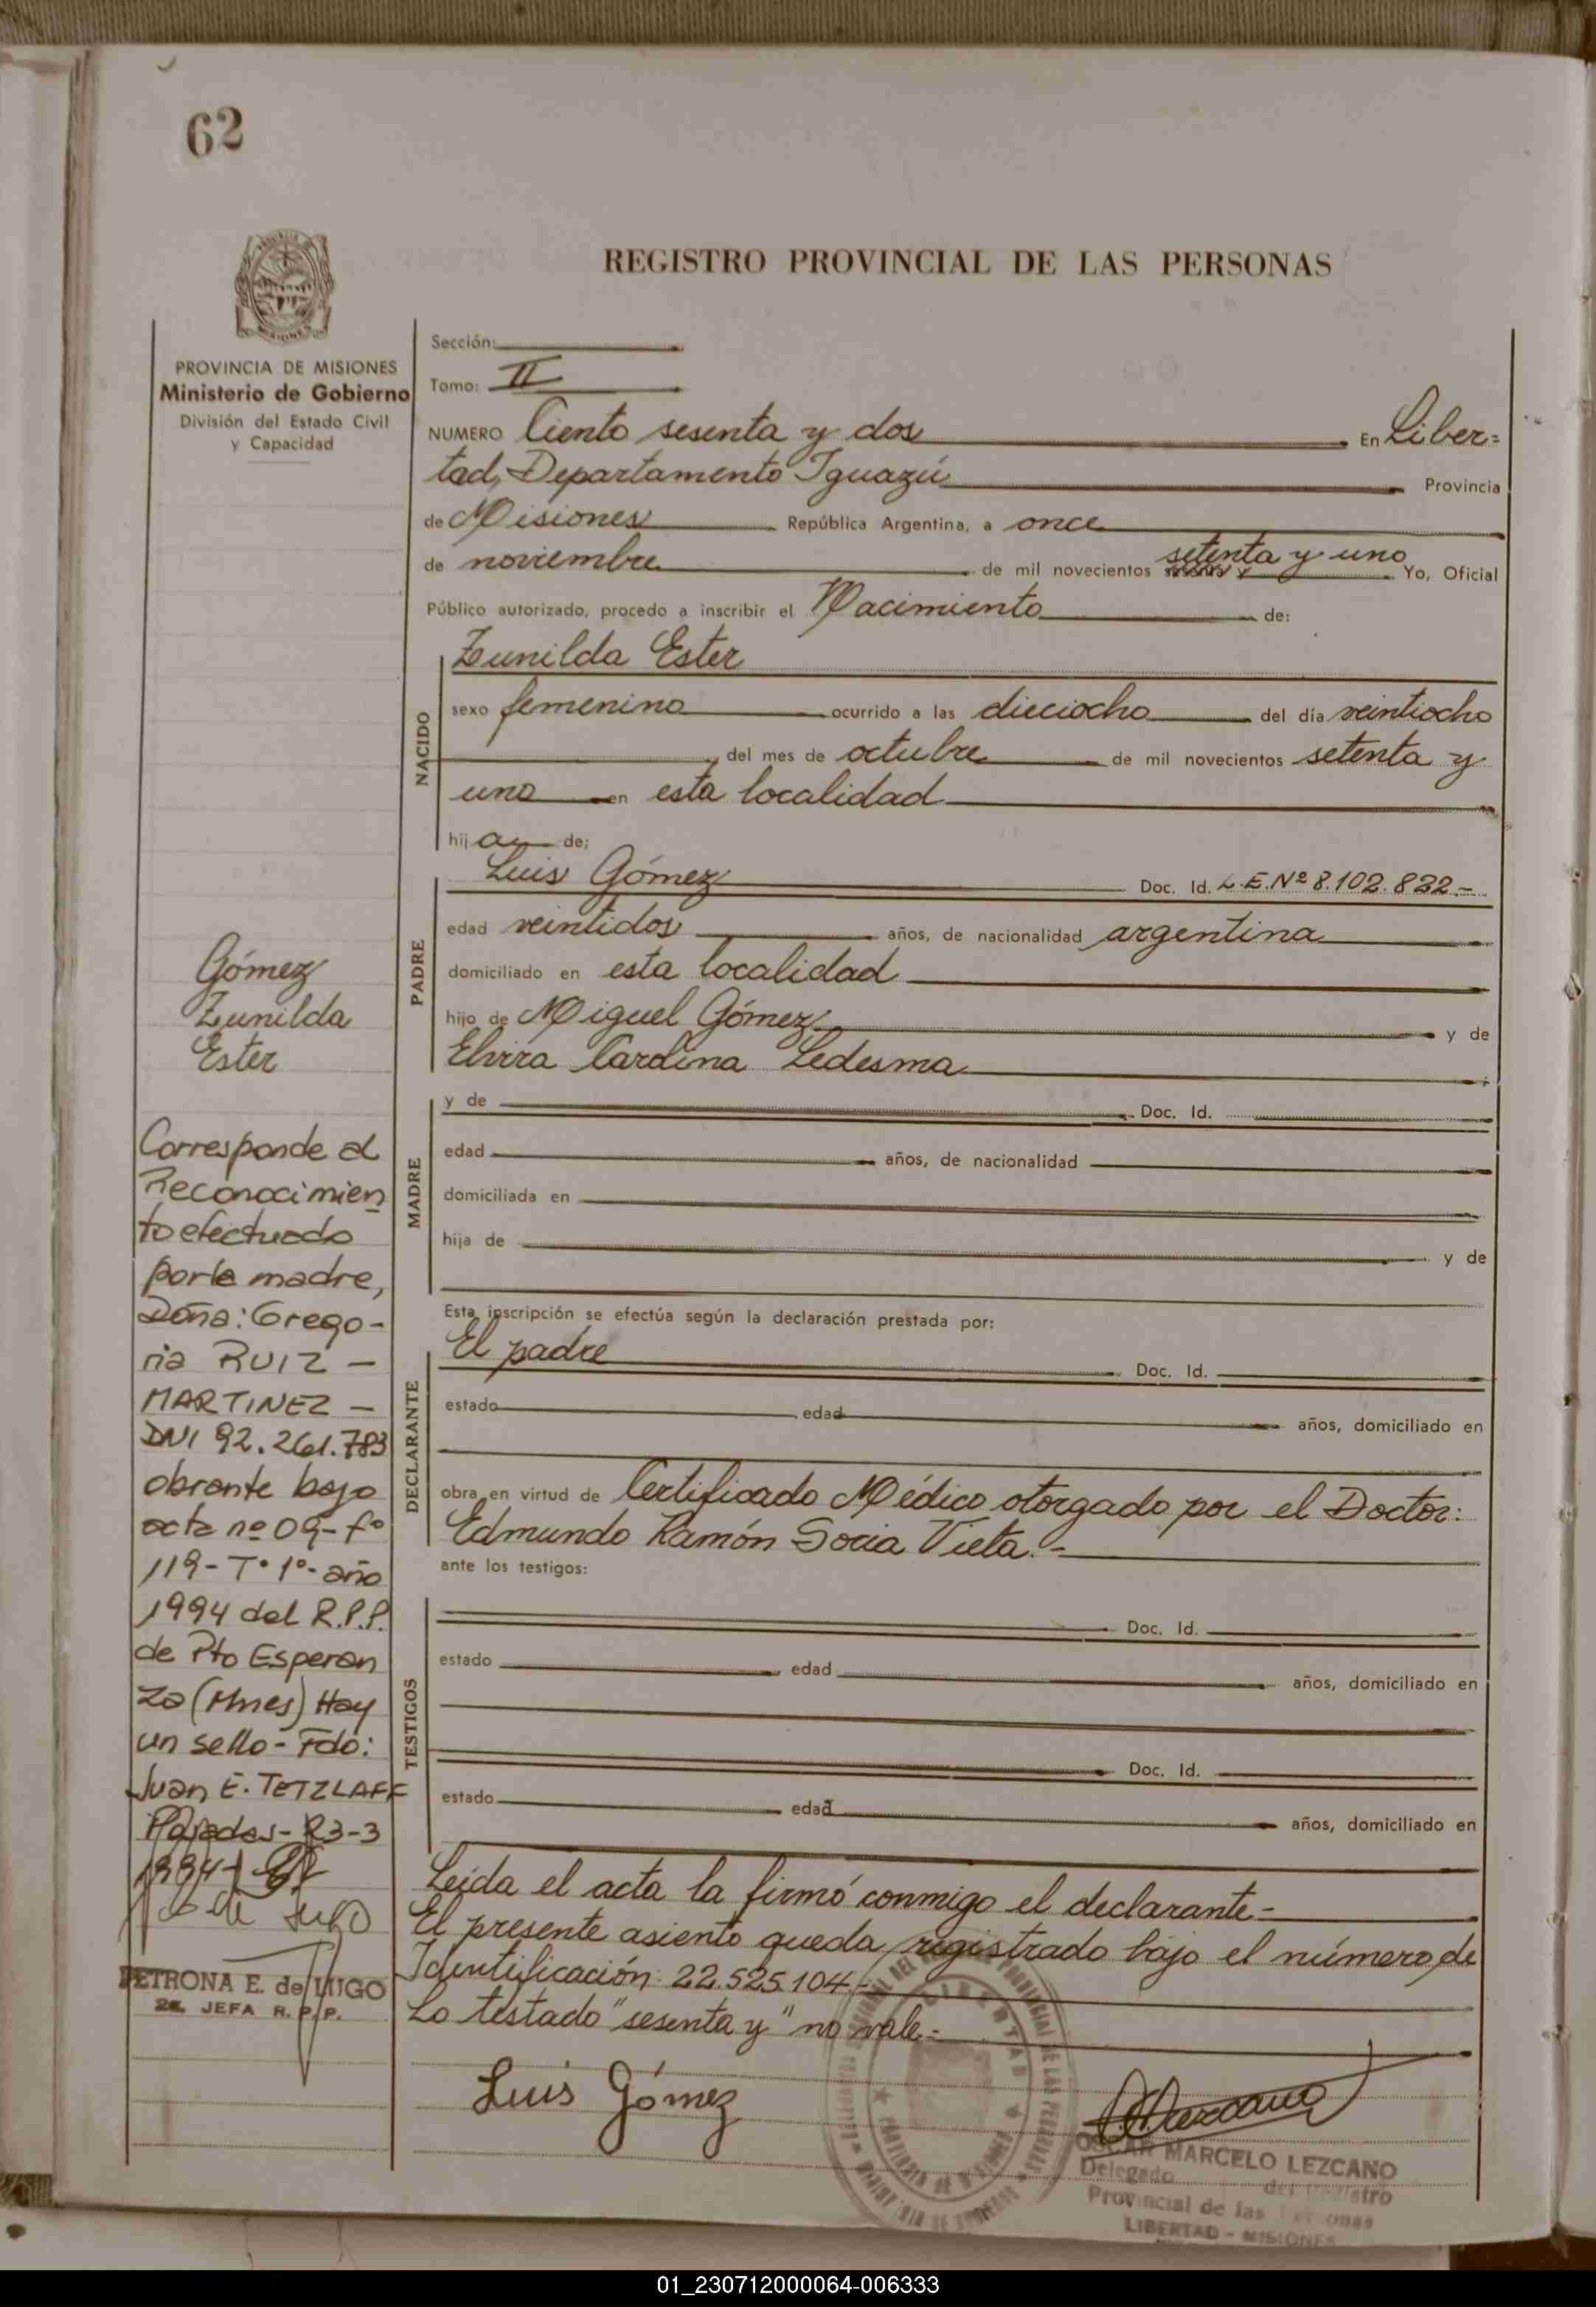 62
REGISTRO PROVINCIAL DE LAS PERSONAS
MISIONES
PROVINCIA DE MISIONES
Ministerio de Gobierno
División del Estado Civil
y Capacidad
Sección:
Tomo: II
NUMERO Ciento sesenta y dos En Liber=
tad, Departamento Iguazú Provincia
de Misiones República Argentina, a once
de noviembre de mil novecientos setenta y uno Yo, Oficial
Público autorizado, procedo a inscribir el Nacimiento de:
NACIDO
Zunilda Ester
sexo femenino ocurrido a las dieciocho del día veintiocho
del mes de octubre de mil novecientos setenta y
uno en esta localidad
hija de:
PADRE
Luis Gómez Doc. Id. L.E.Nº 8.102.822.-
edad veintidos años, de nacionalidad argentina
domiciliado en esta localidad
hijo de Miguel Gómez y de
Elvira Cardina Ledesma
MADRE
y de Doc. Id.
edad años, de nacionalidad
domiciliada en
hija de y de
Esta inscripción se efectúa según la declaración prestada por:
DECLARANTE
El padre Doc. Id.
estado edad años, domiciliado en
obra en virtud de Certificado Médico otorgado por el Doctor:
Edmundo Ramón Soria Vieta.-
ante los testigos:
TESTIGOS
Doc. Id.
estado edad años, domiciliado en
Doc. Id.
estado edad años, domiciliado en
Leída el acta la firmó conmigo el declarante-
El presente asiento queda registrado bajo el número de
Identificación: 22.525.104-
Lo testado "sesenta y" no vale.-
Luis Gómez
OSCAR MARCELO LEZCANO
Delegado del Registro
Provincial de las Personas
LIBERTAD - MISIONES
Gómez
Zunilda
Ester
Corresponde al
Reconocimien
to efectuado
por la madre,
Doña: Grego-
ria RUIZ -
MARTINEZ -
DNI 92.261.783
obrante bajo
acta nº 09-fº
119-Tº 1º-año
1994 del R.P.P.
de Pto Esperan
za (Mnes) Hay
un sello - Fdo:
Juan E. TETZLAFF
Posadas - 23-3
1994-
PETRONA E. de LUGO
2a. JEFA R.P.P.
01_230712000064-006333